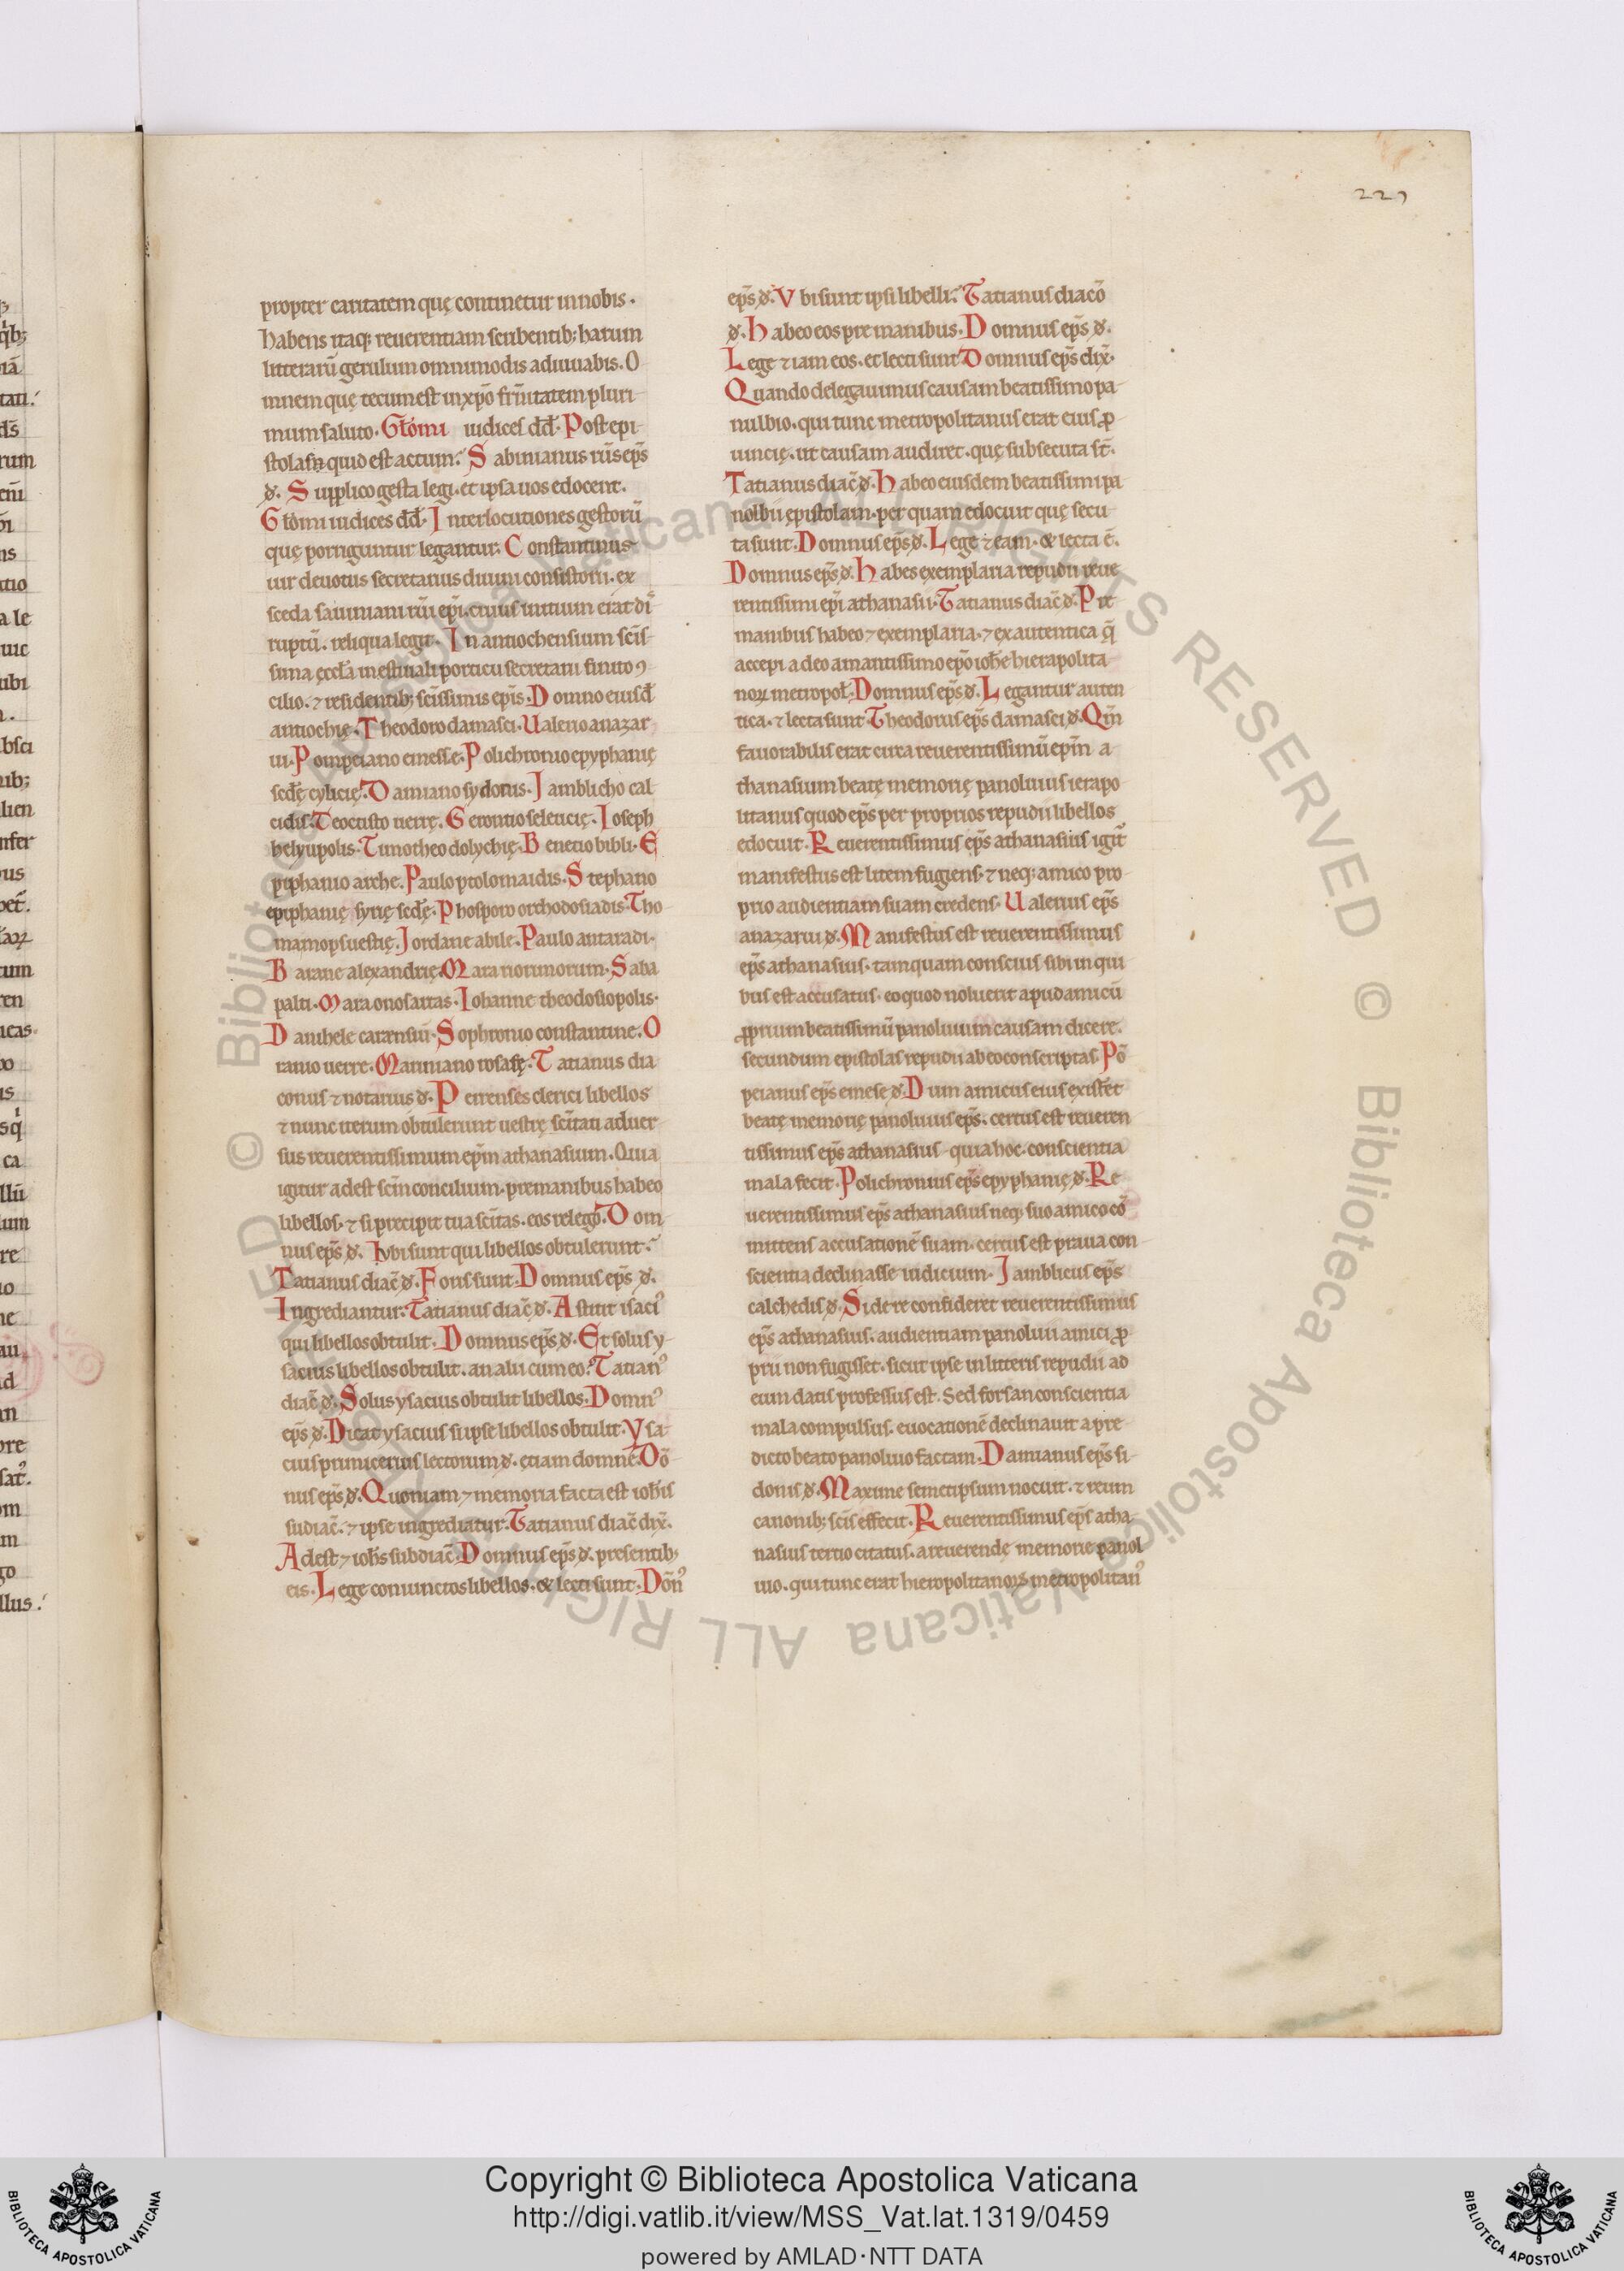 229
propter caritatem quę continetur innobis.
habens itaq; reuerentiam scribentib; harum
litterarũ gerulum omnimodis adiuuabis. O
mnem quę tecum est inxp̃o fr̃nitatem pluri-
mum saluto. Gl̃omi iudices dd̃. Post epi-
stolas quid est actum. Sabinianus eps̃
đ. Supplico gesta legi. et ipsa uos edocent.
Gl̃omi iudices dd̃. Interlocutiones gestorũ
quę porriguntur legantur. Constantinus
uir deuotus secretarius diuum consistorii. ex
sceda sauiniani epĩ. cuius initium erat di
ruptũ. reliqua legit. In antiochensium scis̃-
sima ęccl̃a in estiuali porticu secretarii finito ꝯ
cilio. ⁊ residentib; scis̃simis epĩs. Domno eiusđ
antiochię. Theodoro damasci. Ualerio anazar
ui. Pompeiano emesse. Polichronio epyphanię
secdę cylicię. Damiano sydonis. Iamblicho cal
cidis. Teoctisto uerrę. Gerontio seleucię. Ioseph
helyupolis. Timotheo dolychię. Benetio bibli. E
piphanio arche. Paulo ptolomaidis. Stephano
epiphanię syrię secdę. Phosporo orthodosiadis. Tho
mamopsuestię. Iordane abile. Paulo antaradi.
Barane alexandrię. Mara Saba
palti. Mara onosartas. Iohanne theodosiopolis.
Danihele carensiũ. Sophronio constantine. O
ranio uerre. Marimiano rosafę. Tatianus dia
conus ⁊ notarius đ. Perrenses clerici libellos
⁊ nunc iterum obtulerunt uestrę sci̅tati aduer
sus reuerentissimum epi̅m athanasium. Quia
igitur adest scm̅ concilium. premanibus habeo
libellos. ⁊ si precipit tua sci̅tas. eos relego. Dom
nus eps̃ đ. Ubi sunt qui libellos obtulerunt.
Tatianus diac̃ đ. Foris sunt. Domnus eps̃ đ.
Ingrediantur. Tatianus diac̃ đ. Astitit isaciꝰ
qui libellos obtulit. Domnus eps̃ đ. Et solus y-
sacius libellos obtulit. an alii cum eo. Tatianꝰ
diac̃ đ. Solus ysacius obtulit libellos. Domnꝰ
eps̃ đ. Dicat ysacius si ipse libellos obtulit. Ysa-
cius primicerius lectorum đ. ętiam domne. Dõ-
nus eps̃ đ. Quoniam ⁊ memoria facta est ioh̃is
sudiac̃. ⁊ ipse ingrediatur. Tatianus diac̃ dix̃.
Adest ⁊ ioh̃s subdiac̃. Domnus eps̃ đ. presentib;
eis. Lege conuinctos libellos. & lecti sunt. Dõnꝰ
eps̃ đ. Vbi sunt ipsi libelli. Tatianus diacõ
đ. Habeo eos pre manibus. Domnus eps̃ đ.
Lege ⁊iam eos. et lecti sunt Domnus eps̃ dix̃.
Quando delegauimus causam beatissimo pa-
nulbio. qui tunc metropolitanus erat eius ꝓ
uincię. ut causam audiret. quę subsecuta st̃.
Tatianus diac̃ đ. Habeo eiusdem beatissimi pa
nolbii epistolam. per quam edocuit quę secu-
ta sunt. Domnus eps̃ đ. Lege ⁊ eam. & lecta ẽ.
Domnus eps̃ đ. Habes exemplaria repudii reue
rentissimi epĩ athanasii. Tatianus diac̃ đ. Pre
manibus habeo ⁊ exemplaria. ⁊ exautentica q̃
accepi a deo amantissimo epõ ioh̃e hierapolita
noꝝ metropol̃. Domnus eps̃ đ. Legantur auten
tica. ⁊ lecta sunt. Theodorus eps̃ damasci đ. Qm̃
fauorabilis erat circa reuerentissimũ epi̅m a-
thanasium beatę memorię panoluius ierapo
litanus quod eps̃ per proprios repudii libellos
edocuit. Reuerentissimus eps̃ athanasius igit̃
manifestus est litem fugiens. ⁊ neq; amico pro-
prio audientiam suam credens. Ualerius eps̃
anazarui đ. Manifestus est reuerentissimus
eps̃ athanasius. tamquam conscius sibi in qui-
bus est accusatus. eo quod noluerit apud amicũ
ꝓprium beatissimũ panoluium causam dicere.
secundum epistolas repudii ab eo conscriptas. Põ
peianus eps̃ emese đ. Dum amicus eius existeret
beatę memorię panoluius eps̃. certus est reueren
tissimus eps̃ athanasius quia hoc conscientia
mala fecit. Polichronius eps̃ epyphanię đ. Re
uerentissimus eps̃ athanasius neq; suo amico cõ
mittens accusationẽ suam. certus est praua con
scientia declinasse iudicium. Iamblicus eps̃
calchedis đ. Si de re confideret reuerentissimus
eps̃ athanasius. audientiam panoluii amici ꝓ
prii non fugisset. sicut ipse in litteris repudii ad
eum datis professus est. Sed forsan conscientia
mala compulsus. euocationẽ declinauit a pre-
dicto beato panoluio factam. Damianus eps̃ si-
donis đ. Maxime semetipsum nocuit. ⁊ reum
canonib; scis̃ effecit. Reuerentissimus eps̃ atha-
nasius tertio citatus. a reuerendę memorie panol
uio. qui tunc erat hieropolitanoꝝ metropolitanꝰ
Copyright © Biblioteca Apostolica Vaticana
http://digi.vatlib.it/view/MSS_Vat.lat.1319/0459
powered by AMLAD·NTT DATA